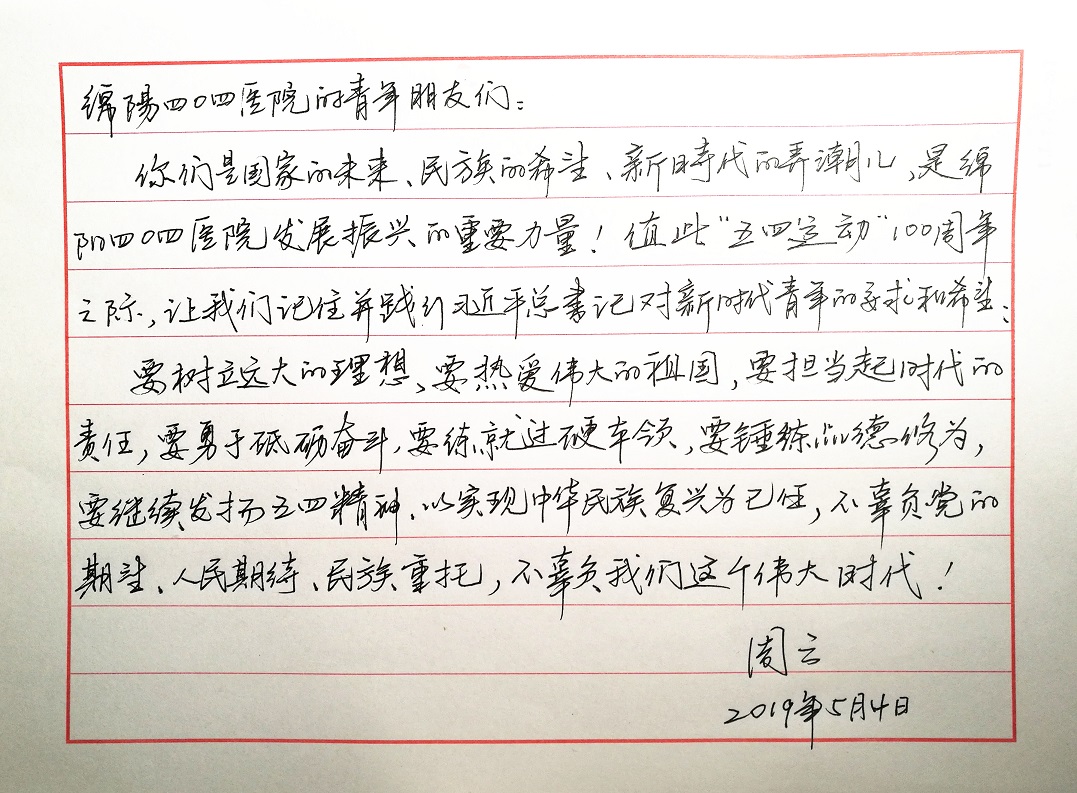 绵陽四〇四医院的青年朋友们：
你们是国家的未来、民族的希望、新時代的弄潮儿，是绵
阳四〇四医院发展振兴的重要力量！值此“五四运动”100周年
之际，让我们记住并践行习近平总書记对新时代青年的要求和希望：
要树立远大的理想、要热爱伟大的祖国，要担当起时代的
责任，要勇于砥砺奋斗，要练就过硬本领，要锤练品德修为，
要继续发扬五四精神，以实现中华民族复兴为己任，不辜负党的
期望、人民期待、民族重托，不辜负我们这个伟大时代！
周云
2019年5月4日